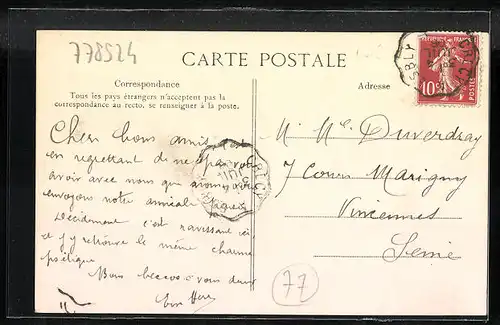 778524
CARTE POSTALE
Correspondance
Tous les pays étrangers n'acceptent pas la
correspondance au recto, se renseigner à la poste.
Adresse
10
POSTES
CRÉCY
ESBLY
Chers bons amis, c'est
en regrettant de ne pas vous
avoir avec nous que nous vous
envoyons notre amical
Décidément c'est ravissant ici
et j'y retrouve le même charme
poétique
Bons baisers à vous deux
M. Mme Duverdray
7 Cours Marigny
Vincennes
Seine
77